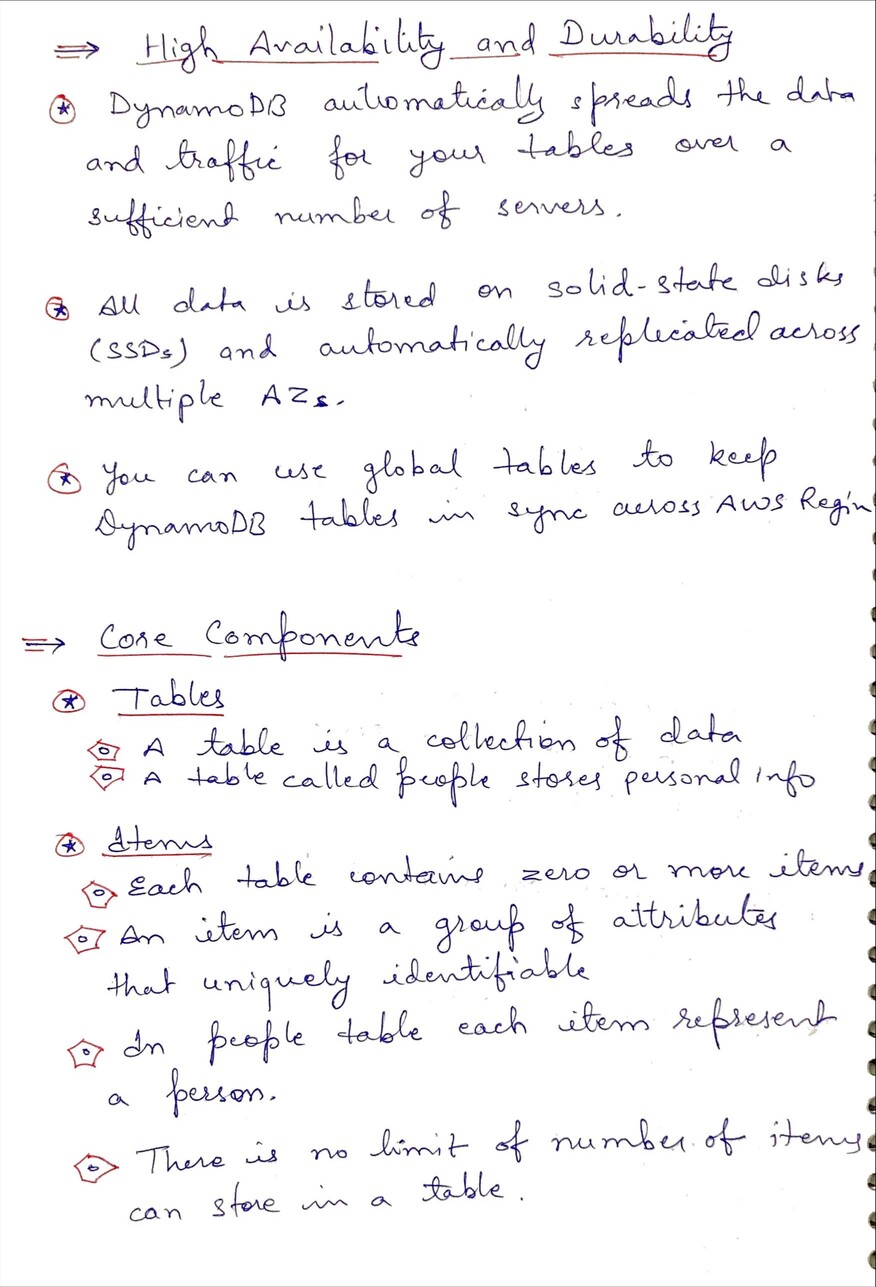 ⇒ High Availability and Durability
DynamoDB automatically spreads the data
and traffic for your tables over a
sufficient number of servers.
All data is stored on solid-state disks
(SSDs) and automatically replicated across
multiple AZs.
You can use global tables to keep
DynamoDB tables in sync across AWS Regin
⇒ Core Components
Tables
A table is a collection of data
A table called people stores personal info
Items
Each table contains zero or more items
An item is a group of attributes
that uniquely identifiable
In people table each item represent
a person.
There is no limit of number of items
can store in a table.